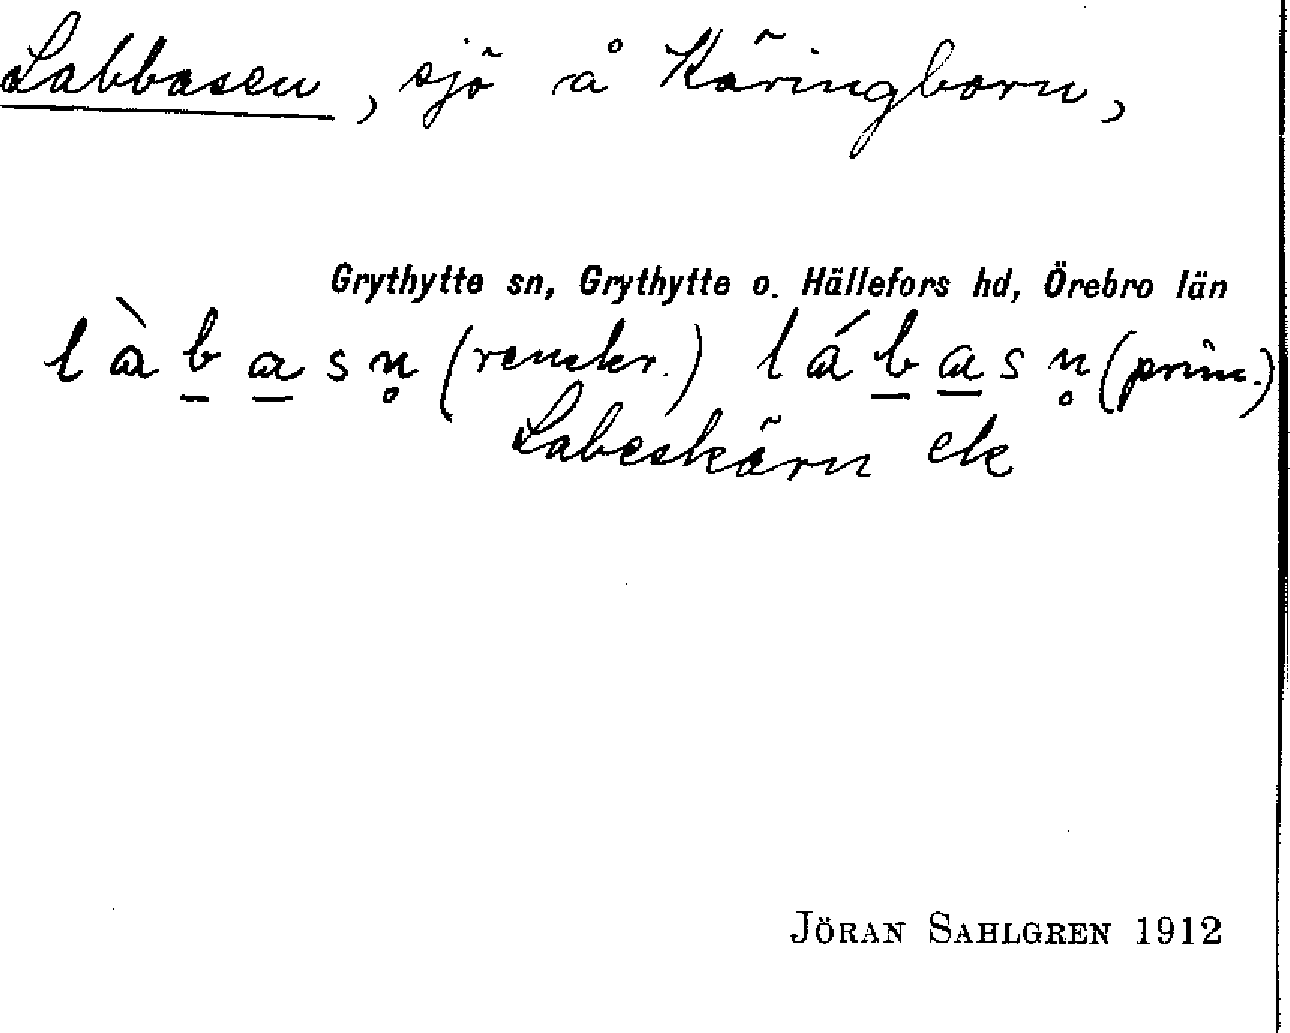 Labbasen, sjö å Käringborn,
Grythytte sn, Grythytte o. Hällefors hd, Örebro län
l à b a s n̥ (renskr.) l á b a s n̥ (prim.)
Labeskärn ek
JÖRAN SAHLGREN 1912